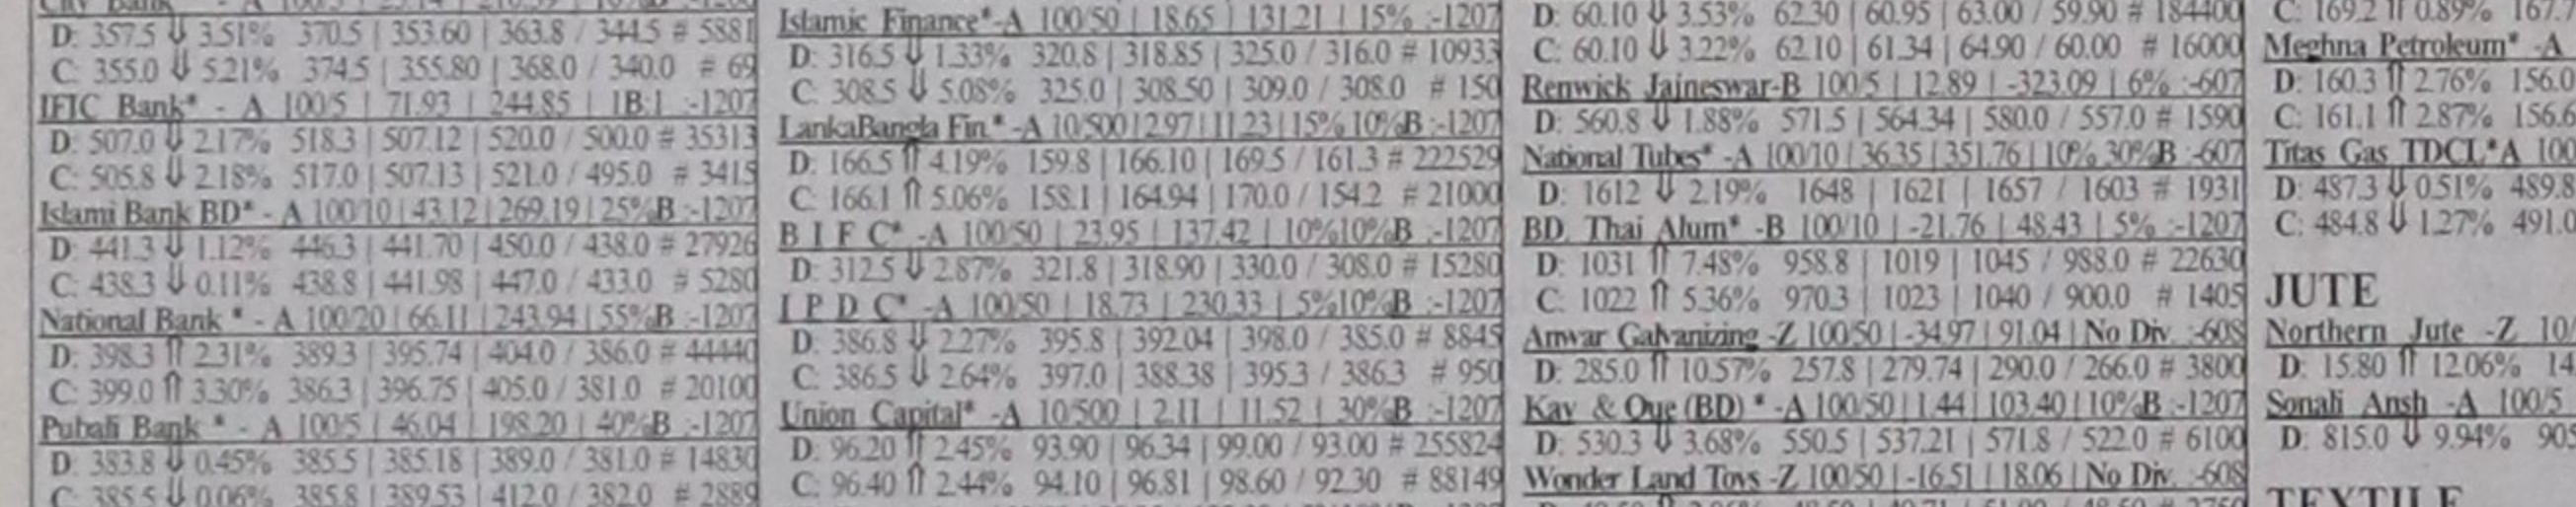 D: 357.5 ⇓ 3.51% 370.5 | 353.60 | 363.8 / 344.5 # 5881
C: 355.0 ⇓ 5.21% 374.5 | 355.80 | 368.0 / 340.0 # 69
IFIC Bank* - A 100/5 | 71.93 | 244.85 | 1B:1 :-1207
D: 507.0 ⇓ 2.17% 518.3 | 507.12 | 520.0 / 500.0 # 35313
C: 505.8 ⇓ 2.18% 517.0 | 507.13 | 521.0 / 495.0 # 3415
Islami Bank BD* - A 100/10 | 43.12 | 269.19 | 25%B :-1207
D: 441.3 ⇓ 1.12% 446.3 | 441.70 | 450.0 / 438.0 # 27926
C: 438.3 ⇓ 0.11% 438.8 | 441.98 | 447.0 / 433.0 # 5280
National Bank * - A 100/20 | 66.11 | 243.94 | 55%B :-1207
D: 398.3 ⇑ 2.31% 389.3 | 395.74 | 404.0 / 386.0 # 44440
C: 399.0 ⇑ 3.30% 386.3 | 396.75 | 405.0 / 381.0 # 20100
Pubali Bank * - A 100/5 | 46.04 | 198.20 | 40%B :-1207
D: 383.8 ⇓ 0.45% 385.5 | 385.18 | 389.0 / 381.0 # 14830
C: 385.5 ⇓ 0.06% 385.8 | 389.53 | 412.0 / 382.0 # 2889
Islamic Finance*-A 100/50 | 18.65 | 131.21 | 15% :-1207
D: 316.5 ⇓ 1.33% 320.8 | 318.85 | 325.0 / 316.0 # 10933
C: 308.5 ⇓ 5.08% 325.0 | 308.50 | 309.0 / 308.0 # 150
LankaBangla Fin.* -A 10/500 | 2.97 | 11.23 | 15% 10%B :-1207
D: 166.5 ⇑ 4.19% 159.8 | 166.10 | 169.5 / 161.3 # 222529
C: 166.1 ⇑ 5.06% 158.1 | 164.94 | 170.0 / 154.2 # 21000
B I F C* -A 100/50 | 23.95 | 137.42 | 10%10%B :-1207
D: 312.5 ⇓ 2.87% 321.8 | 318.90 | 330.0 / 308.0 # 15280
I P D C* -A 100/50 | 18.73 | 230.33 | 5%10%B :-1207
D: 386.8 ⇓ 2.27% 395.8 | 392.04 | 398.0 / 385.0 # 8845
C: 386.5 ⇓ 2.64% 397.0 | 388.38 | 395.3 / 386.3 # 950
Union Capital* -A 10/500 | 2.11 | 11.52 | 30%B :-1207
D: 96.20 ⇑ 2.45% 93.90 | 96.34 | 99.00 / 93.00 # 255824
C: 96.40 ⇑ 2.44% 94.10 | 96.81 | 98.60 / 92.30 # 88149
D: 60.10 ⇓ 3.53% 62.30 | 60.95 | 63.00 / 59.90 # 184400
C: 60.10 ⇓ 3.22% 62.10 | 61.34 | 64.90 / 60.00 # 16000
Renwick Jajneswar-B 100/5 | 12.89 | -323.09 | 6% :-607
D: 560.8 ⇓ 1.88% 571.5 | 564.34 | 580.0 / 557.0 # 1590
National Tubes* -A 100/10 | 36.35 | 351.76 | 10% 30%B :-607
D: 1612 ⇓ 2.19% 1648 | 1621 | 1657 / 1603 # 1931
BD. Thai Alum* -B 100/10 | -21.76 | 48.43 | 5% :-1207
D: 1031 ⇑ 7.48% 958.8 | 1019 | 1045 / 988.0 # 22630
C: 1022 ⇑ 5.36% 970.3 | 1023 | 1040 / 900.0 # 1405
Anwar Galvanizing -Z 100/50 | -34.97 | 91.04 | No Div. :-608
D: 285.0 ⇑ 10.57% 257.8 | 279.74 | 290.0 / 266.0 # 3800
Kay & Que (BD) * -A 100/50 | 1.44 | 103.40 | 10%B :-1207
D: 530.3 ⇓ 3.68% 550.5 | 537.21 | 571.8 / 522.0 # 6100
Wonder Land Toys -Z 100/50 | -16.51 | 18.06 | No Div. :-608
C: 169.2 ⇑ 0.89% 167.
Meghna Petroleum* -A
D: 160.3 ⇑ 2.76% 156.0
C: 161.1 ⇑ 2.87% 156.6
Titas Gas TDCL*A 100
D: 487.3 ⇓ 0.51% 489.8
C: 484.8 ⇓ 1.27% 491.0
JUTE
Northern Jute -Z 10
D: 15.80 ⇑ 12.06% 14
Sonali Ansh -A 100/5
D: 815.0 ⇓ 9.94% 905
TEXTILE